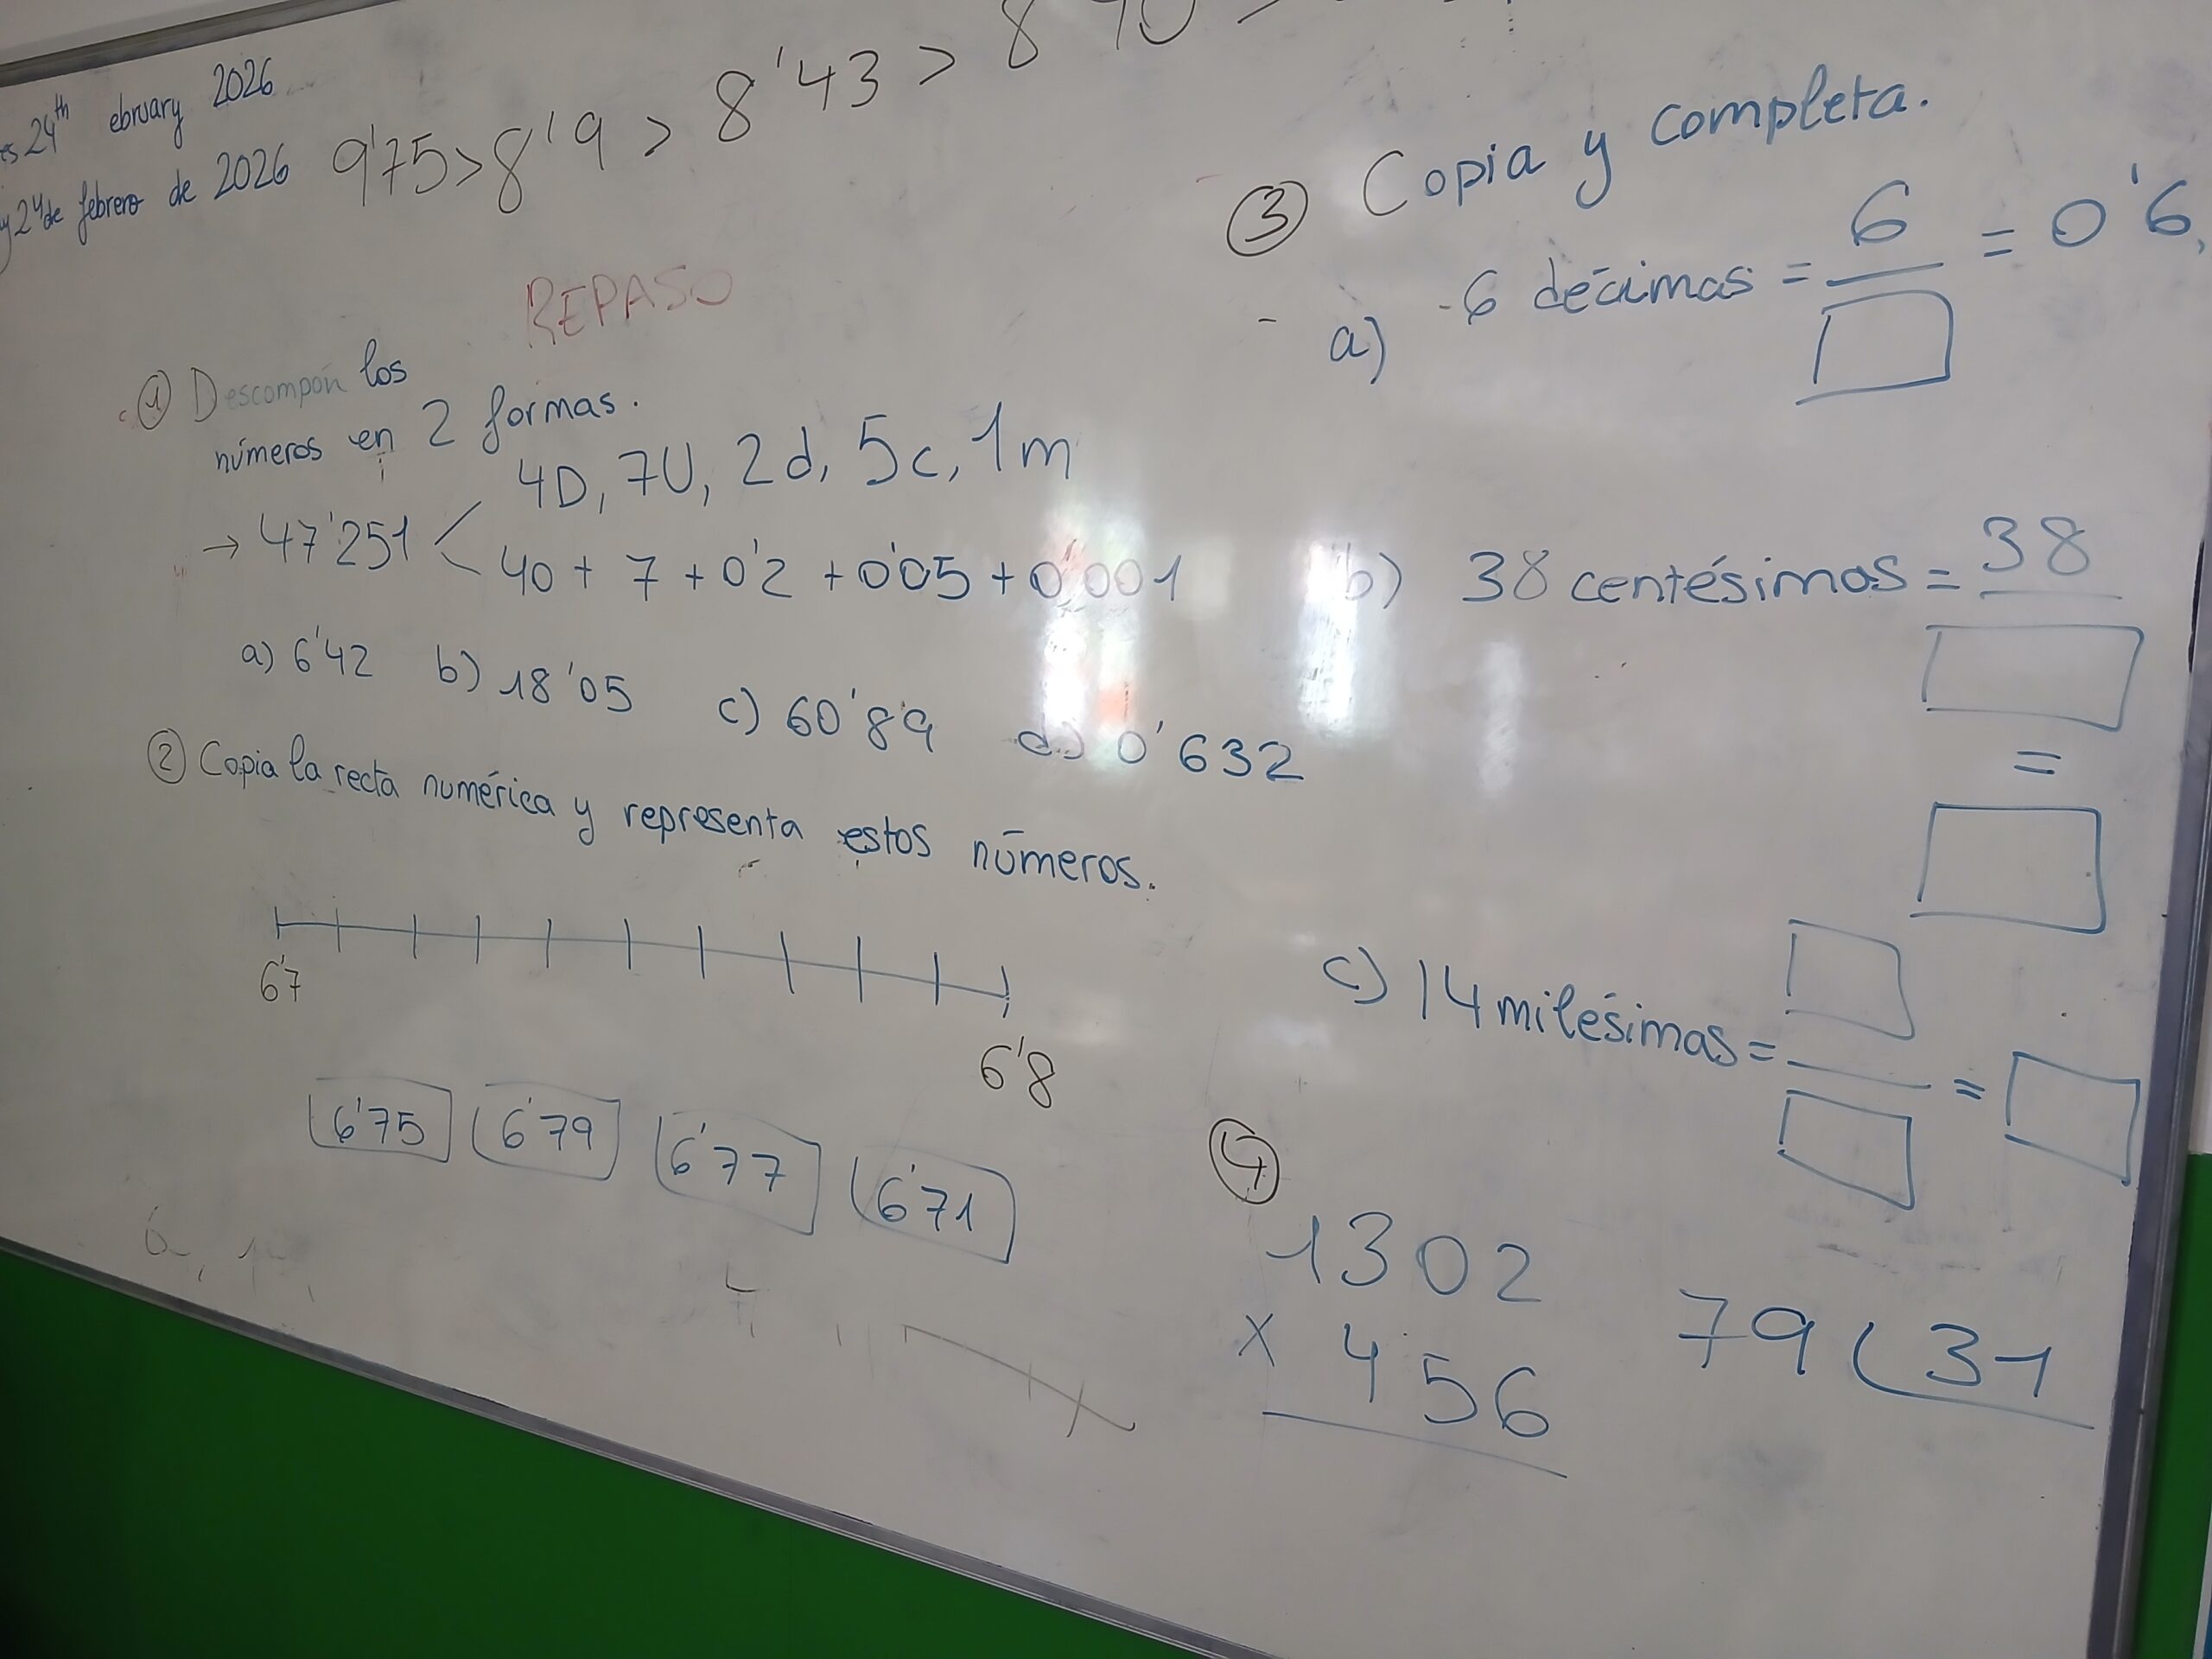 24th ebruary 2026
24 de febrero de 2026
9'75 > 8'9 > 8'43 >
REPASO
① Descompón los
números en 2 formas.
→ 47'251 < 4D, 7U, 2d, 5c, 1m
40 + 7 + 0'2 + 0'05 + 0'001
a) 6'42 b) 18'05 c) 60'89 d) 0'632
② Copia la recta numérica y representa estos números.
6'7
6'8
6'75 6'79 6'77 6'71
③ Copia y completa.
a) 6 décimas = 6 = 0'6
b) 38 centésimas = 38
=
c) 14 milésimas = =
④
1302
x 456
79 31